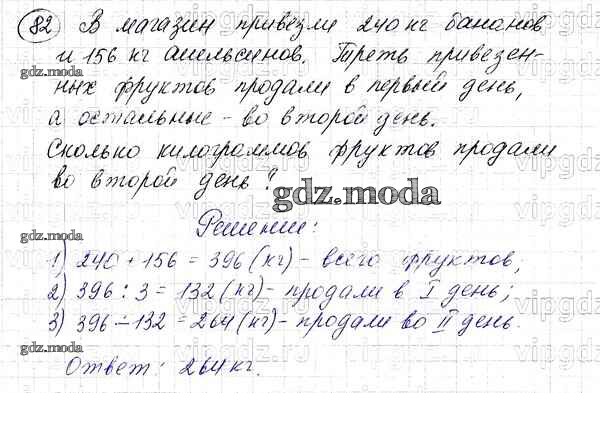 82 В магазин привезли 240 кг бананов
и 156 кг апельсинов. Треть привезен-
gdz.moda
ных фруктов продали в первый день,
а остальные - во второй день.
gdz.moda
Сколько килограммов фруктов продали
во второй день?
gdz.moda
Решение:
gdz.moda
1) 240 + 156 = 396 (кг) - всего фруктов;
2) 396 : 3 = 132 (кг) - продали в I день;
3) 396 - 132 = 264 (кг) - продали во II день.
gdz.moda
Ответ: 264 кг.
vipgdz.ru